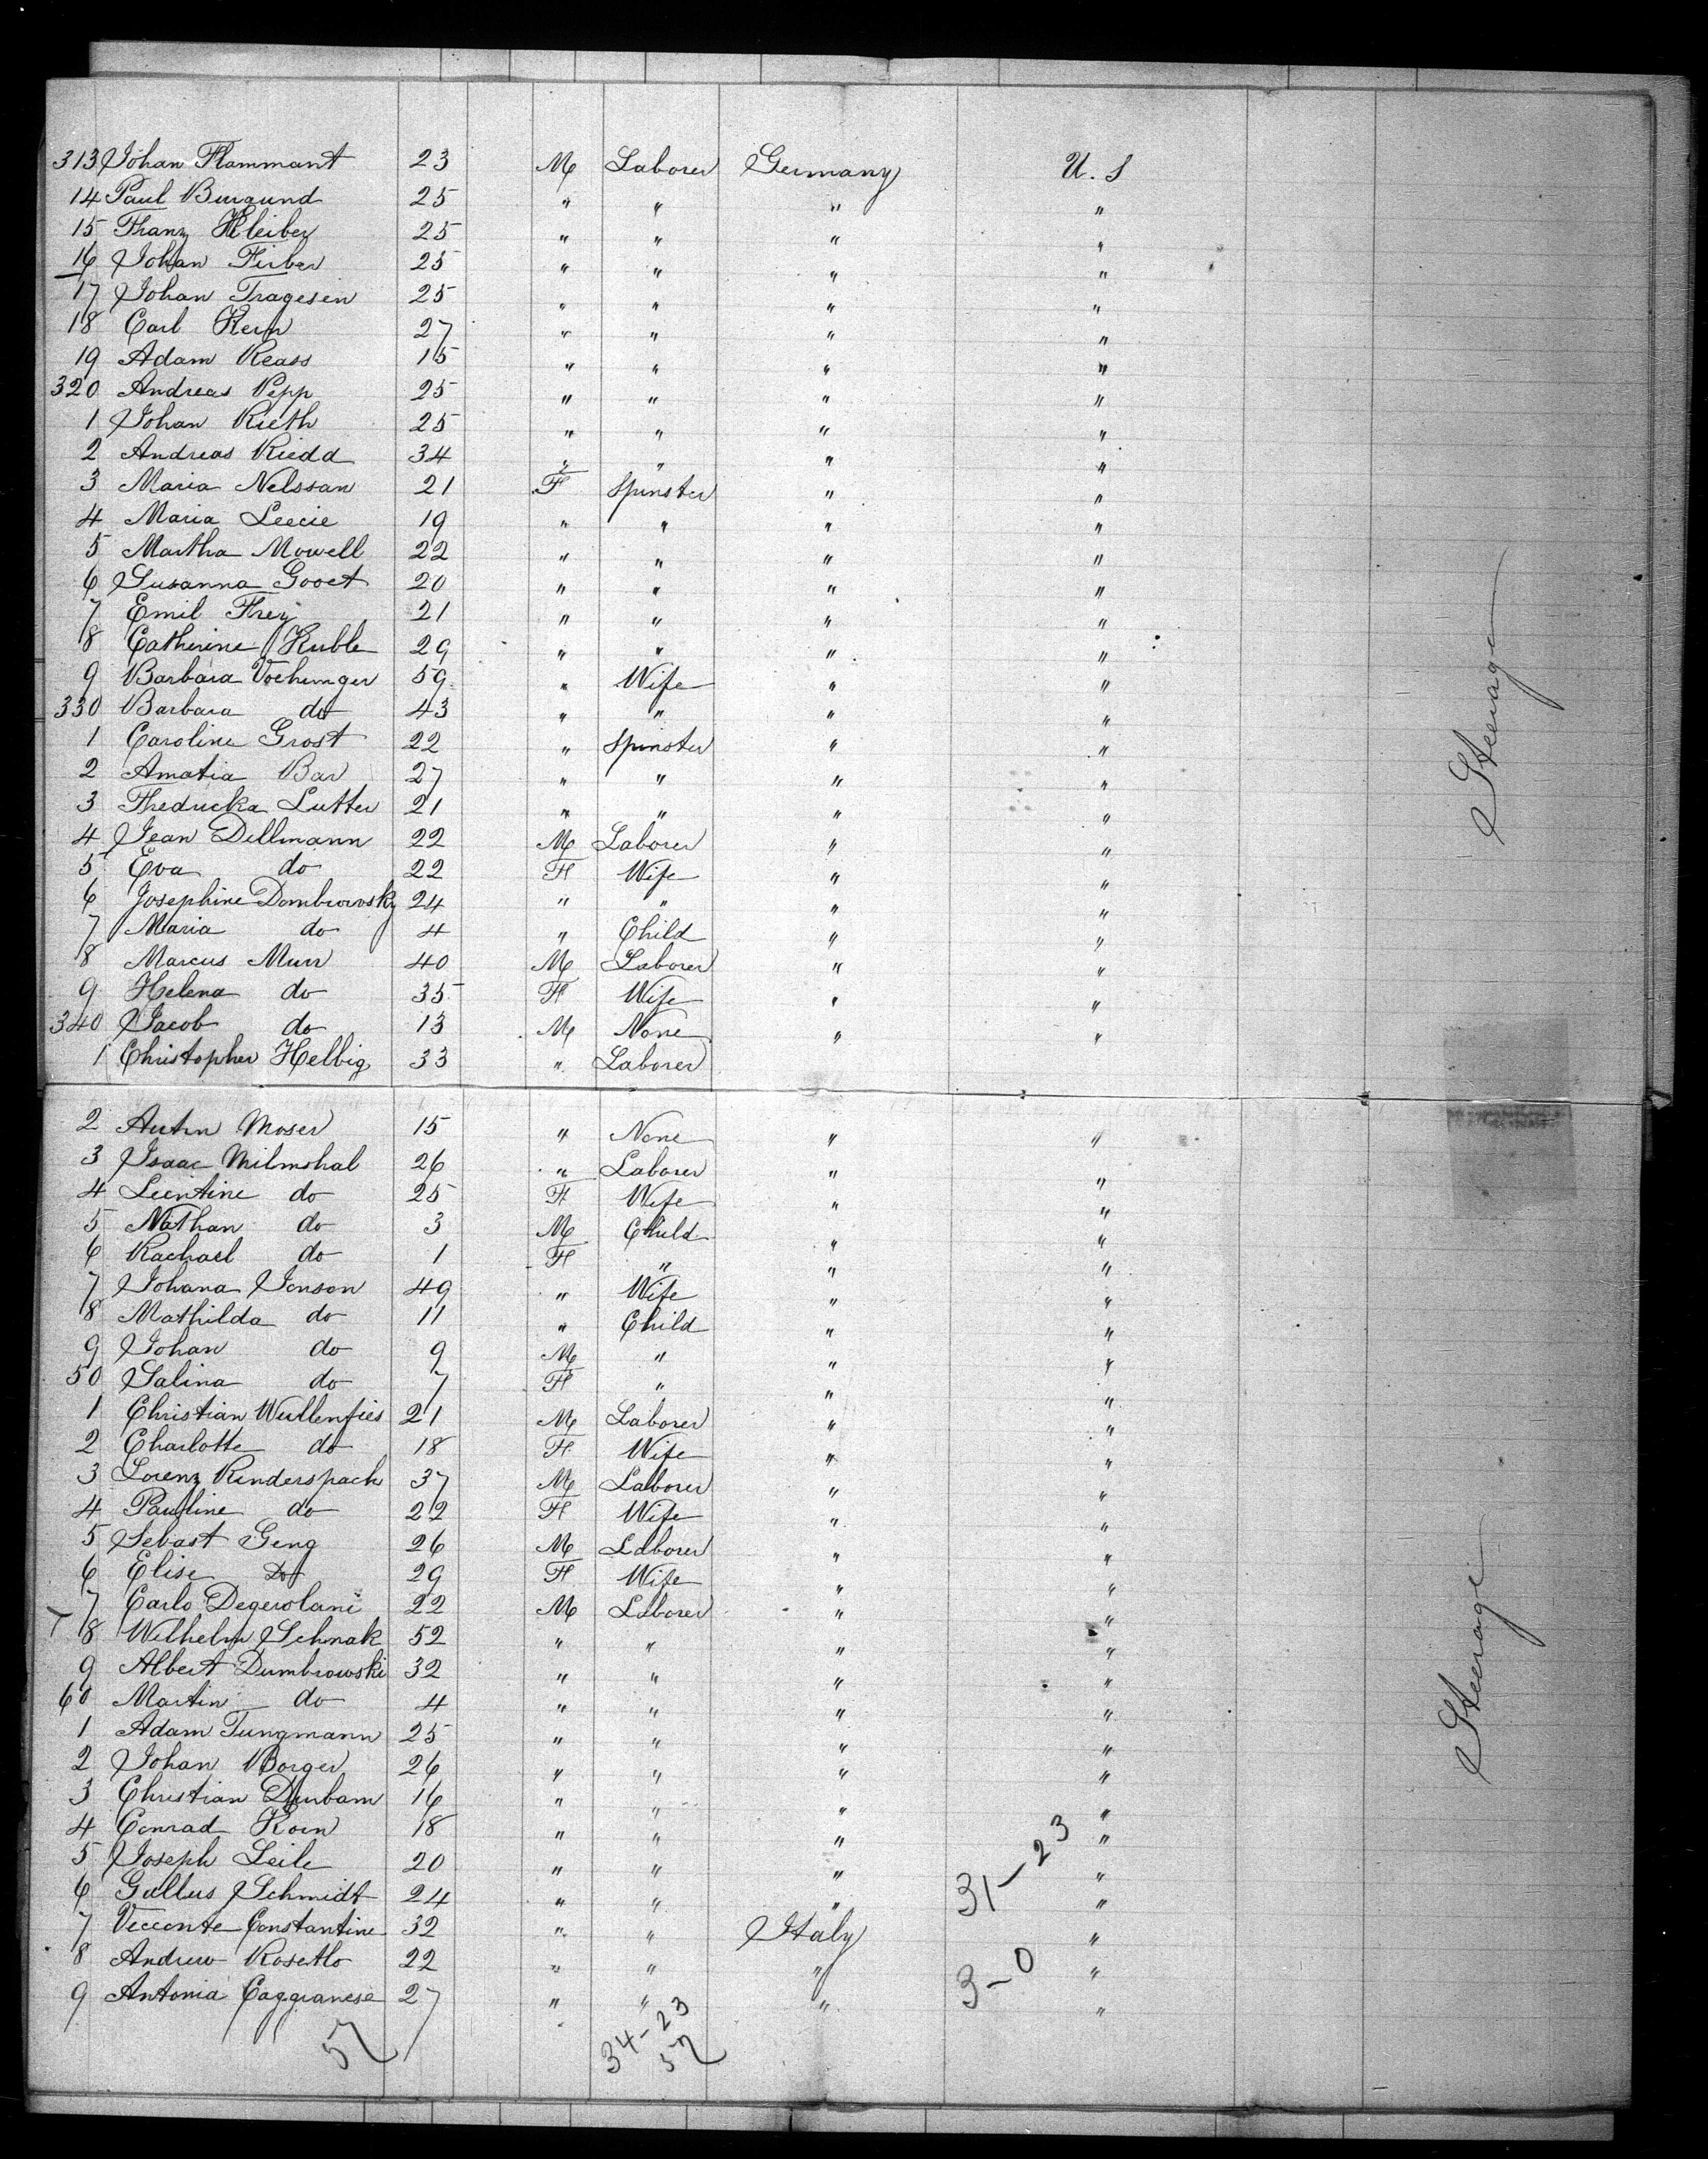 313 Johan Flammant 23 M Laborer Germany U. S
14 Paul Burgund 25 " " " "
15 Franz Kleiber 25 " " " "
16 Johan Firber 25 " " " "
17 Johan Tragesen 25 " " " "
18 Carl Kern 27 " " " "
19 Adam Reass 15 " " " "
320 Andreas Pepp 25 " " " "
1 Johan Rieth 25 " " " "
2 Andreas Riedd 34 " " " "
3 Maria Nelssan 21 F Spinster " "
4 Maria Leecie 19 " " " "
5 Martha Mowell 22 " " " "
6 Susanna Gooct 20 " " " "
7 Emil Frey 21 " " " "
8 Catherine Kuble 29 " " " "
9 Barbara Vochinger 59 " Wife " "
330 Barbara do 43 " " " "
1 Caroline Grost 22 " Spinster " "
2 Amatia Bar 27 " " " "
3 Fredricka Lutter 21 " " " "
4 Jean Dellmann 22 M Laborer " "
5 Eva do 22 F Wife " "
6 Josephine Dombrowsky 24 " " " "
7 Maria do 4 " Child " "
8 Marcus Murr 40 M Laborer " "
9 Helena do 35 F Wife " "
340 Jacob do 13 M None " "
1 Christopher Helbig 33 " Laborer
2 Autin Moser 15 " None " "
3 Isaac Milmshal 26 " Laborer " "
4 Leentine do 25 F Wife " "
5 Nathan do 3 M Child " "
6 Rachael do 1 F " " "
7 Johana Jonson 49 " Wife " "
8 Mathilda do 11 " Child " "
9 Johan do 9 M " " "
50 Salina do 7 F " " "
1 Christian Wullenfies 21 M Laborer " "
2 Charlotte do 18 F Wife " "
3 Lorenz Rinderspach 37 M Laborer " "
4 Pauline do 22 F Wife " "
5 Sebast Geng 26 M Laborer " "
6 Elise Do 29 F Wife " "
7 Carlo Degerolami 22 M Laborer " "
8 Wilhelm Schnak 52 " " " "
9 Albert Dumbrowski 32 " " " "
60 Martin do 4 " " " "
1 Adam Tungmann 25 " " " "
2 Johan Borger 26 " " " "
3 Christian Durbam 16 " " " "
4 Conrad Korn 18 " " " "
5 Joseph Leile 20 " " " "
6 Gallus Schmidt 24 " " " "
7 Vecconte Constantine 32 " " Italy "
8 Andrew Rosetto 22 " " " "
9 Antonia Caggianese 27 " " " "
31-23
3-0
57
34-23
57
Steerage
Steerage